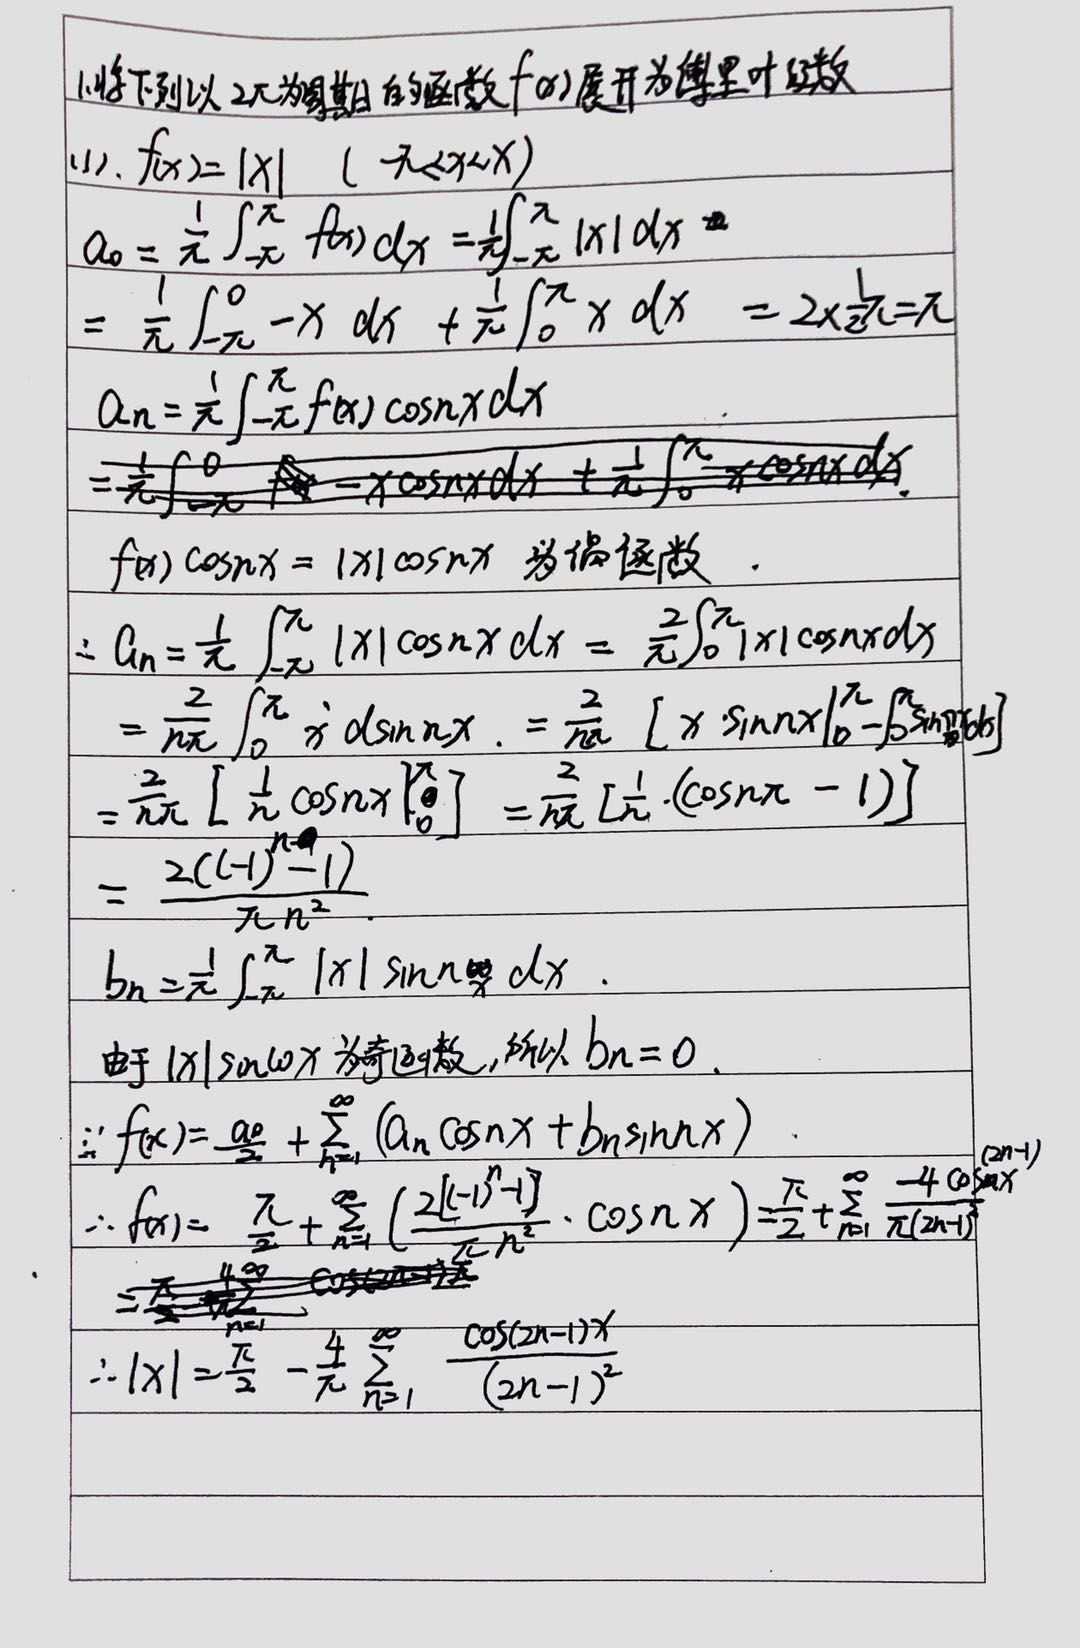 1.将下列以2π为周期的函数f(x)展开为傅里叶级数
(1). f(x)=|x| (-π<x<x)
a₀ = 1/π ∫_{-π}^{π} f(x) dx = 1/π ∫_{-π}^{π} |x| dx
= 1/π ∫_{-π}^{0} -x dx + 1/π ∫_{0}^{π} x dx = 2×1/2π=π
aₙ = 1/π ∫_{-π}^{π} f(x) cosnx dx
= 1/π ∫_{-π}^{0} -x cosnx dx + 1/π ∫_{0}^{π} x cosnx dx.
f(x) cosnx = |x| cosnx 为偶函数.
∴ aₙ = 1/π ∫_{-π}^{π} |x| cosnx dx = 2/π ∫_{0}^{π} |x| cosnx dx
= 2/nπ ∫_{0}^{π} x dsinnx. = 2/nπ [x·sinnx|_{0}^{π} - ∫_{0}^{π} sinnx dx]
= 2/nπ [1/n cosnx|_{0}^{π}] = 2/nπ [1/n·(cosnπ - 1)]
= 2((-1)ⁿ-1)/πn².
bₙ = 1/π ∫_{-π}^{π} |x| sinnx dx.
由于|x|sinωx为奇函数,所以bₙ=0.
∵ f(x) = a₀/2 + ∑_{n=1}^{∞} (aₙ cosnx + bₙ sinnx).
∴ f(x) = π/2 + ∑_{n=1}^{∞} (2[(-1)ⁿ-1]/πn² · cosnx) = π/2 + ∑_{n=1}^{∞} -4cos(2n-1)x/π(2n-1)²
∴ |x| = π/2 - 4/π ∑_{n=1}^{∞} cos(2n-1)x/(2n-1)²